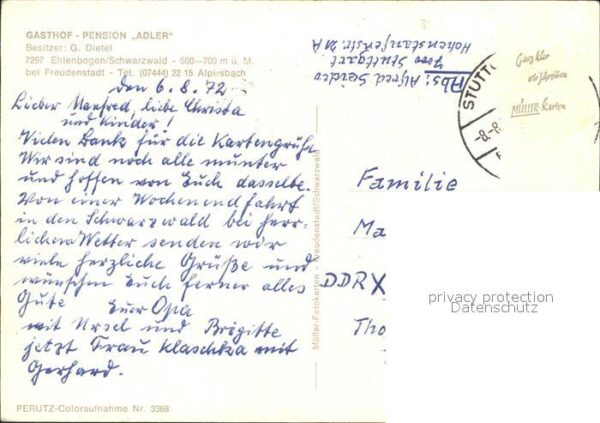 GASTHOF - PENSION „ADLER"
Besitzer: G. Dietel
7297 Ehlenbogen/Schwarzwald - 500—700 m ü. M.
bei Freudenstadt - Tel. (07444) 22 15 Alpirsbach
den 6.8.72
Lieber Manfred, liebe Christa
und Kinder!
Vielen Dank für die Kartengrüße.
Wir sind noch alle munter
und hoffen von Euch dasselbe.
Von einer Wochenendfahrt
in den Schwarzwald bei herr-
lichem Wetter senden wir
viele herzliche Grüße und
wünschen Euch ferner alles
Gute Euer Opa
mit Ursel und Brigitte
jetzt Frau Klaschka mit
Gerhard.
PERUTZ-Coloraufnahme Nr. 3368
Müller-Fotokarten - Freudenstadt/Schwarzwald
Abs: Alfred
7000 Stuttgart
Hohenstaufenstr. 21A
STUTT
-8.-8.
Ganz klar
wir schreiben
MÜLLER-Karten
Familie
Ma
DDR X
Tho
privacy protection
Datenschutz